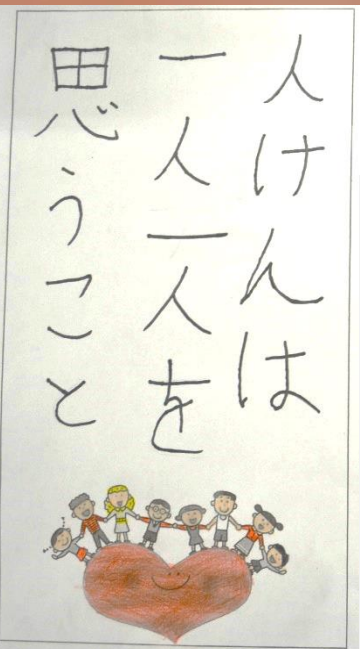 人けんは
一人一人を
思うこと